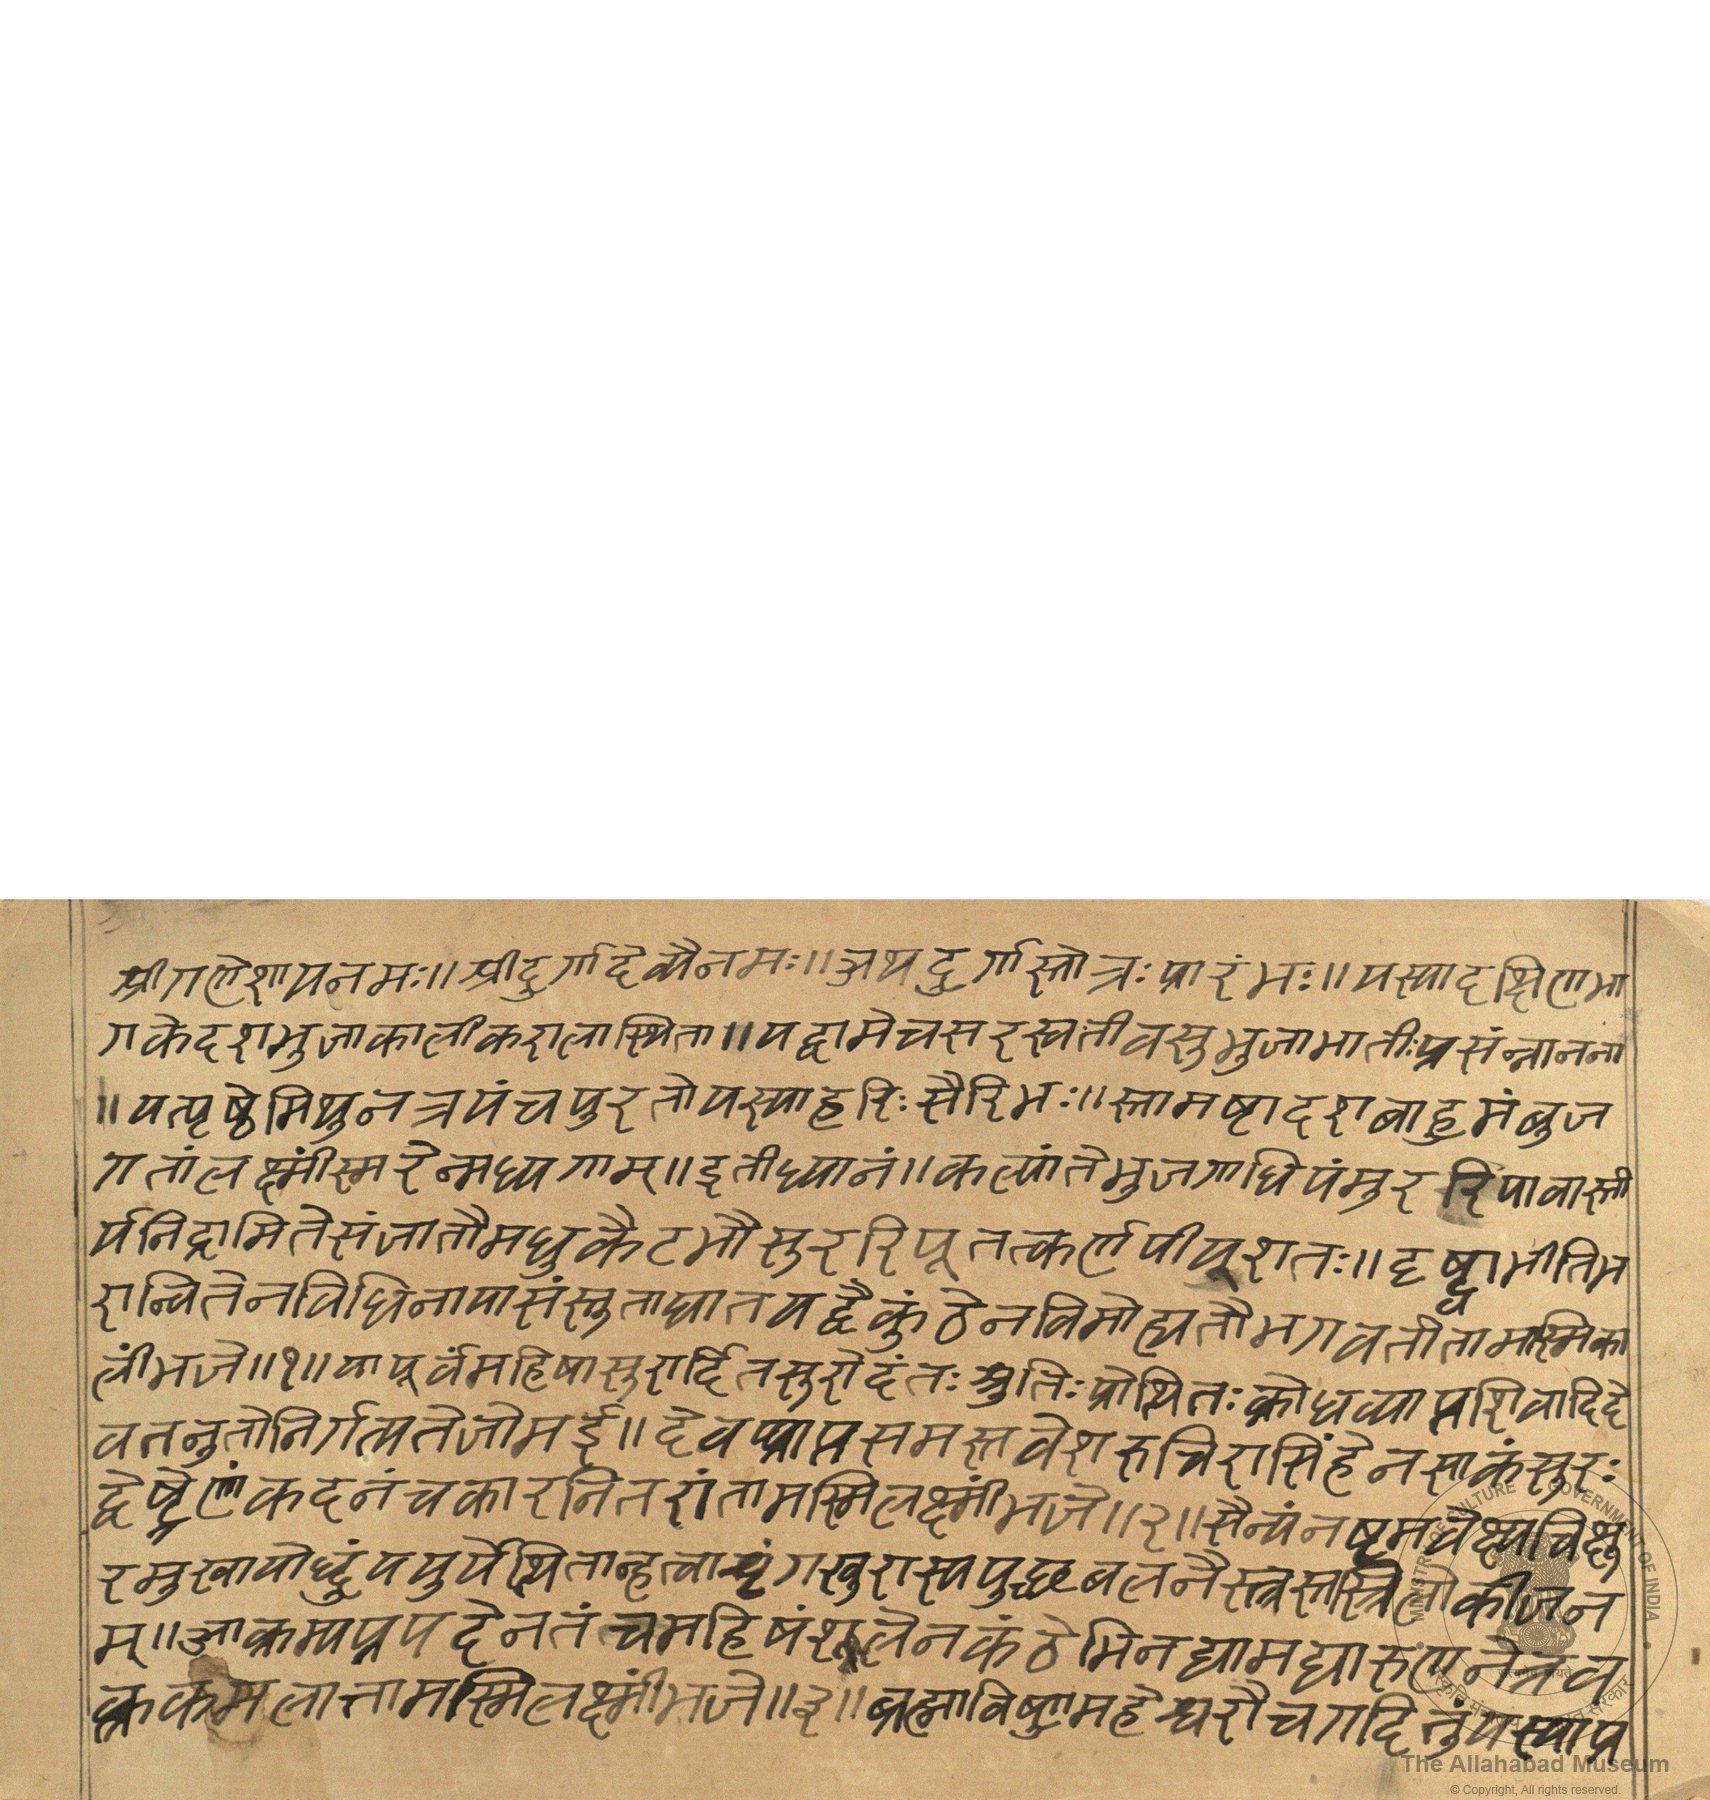 श्रीगणेशायनमः॥श्रीदुर्गादेव्यैनमः॥अथदुर्गास्तोत्रःप्रारंभः॥यस्यादक्षिणभा
गकेदशभुजाकालीकरालास्थिता॥यद्वामेचसरस्वतीवसुभुजाभातीःप्रसंन्नानना
॥यत्पृष्ठेमिथुनत्रयंचपुरतोयस्याहरिःसैरिभः॥स्तामष्टादशबाहुमंबुज
गतांलक्ष्मींस्मरेन्मध्यगाम्॥इतीध्यानं॥कल्पांतेभुजगाधिपंमुररिपावास्ती
र्यनिद्रामितेसंजातौमधुकैटभौसुररिपूतत्कर्णपीयूशतः॥दृष्ट्वाभीतिभ
रान्वितेनविधिनायासंस्तुताघातयद्वैकुंठेनविमोह्यतौभगवतीतामस्मिका
लींभजे॥१॥यापूर्वंमहिषासुरार्दितसुरोदंतःश्रुतिःप्रोथितःक्रोधव्याप्तशिवादिदे
वतनुतोनिर्गत्यतेजोमई॥देवप्राप्तसमस्तवेशरुचिरासिंहेनसाकंसुरः
द्वेष्ट्रॄणांकदनंचकारनितरांतामस्मिलक्ष्मींभजे॥२॥सैन्यंनष्टमवेक्ष्यचिक्षु
रमुखायोध्दुंययुर्येथितान्हत्वाशृंगखुरास्यपुछबलनैस्त्रस्तास्त्रिलोकीजन
म्॥आक्रम्यप्रपदेनतंचमहिषंशूलेनकंठेभिनद्यामद्यारुणनेत्रव
क्त्रकमलात्तामस्मिलक्ष्मींभजे॥३॥ब्रह्माविष्णुमहेश्वरौचगदितुंयस्याप्र
MINISTRY OF CULTURE GOVERNMENT OF INDIA
सत्यमेव जयते
The Allahabad Museum
© Copyright, All rights reserved.